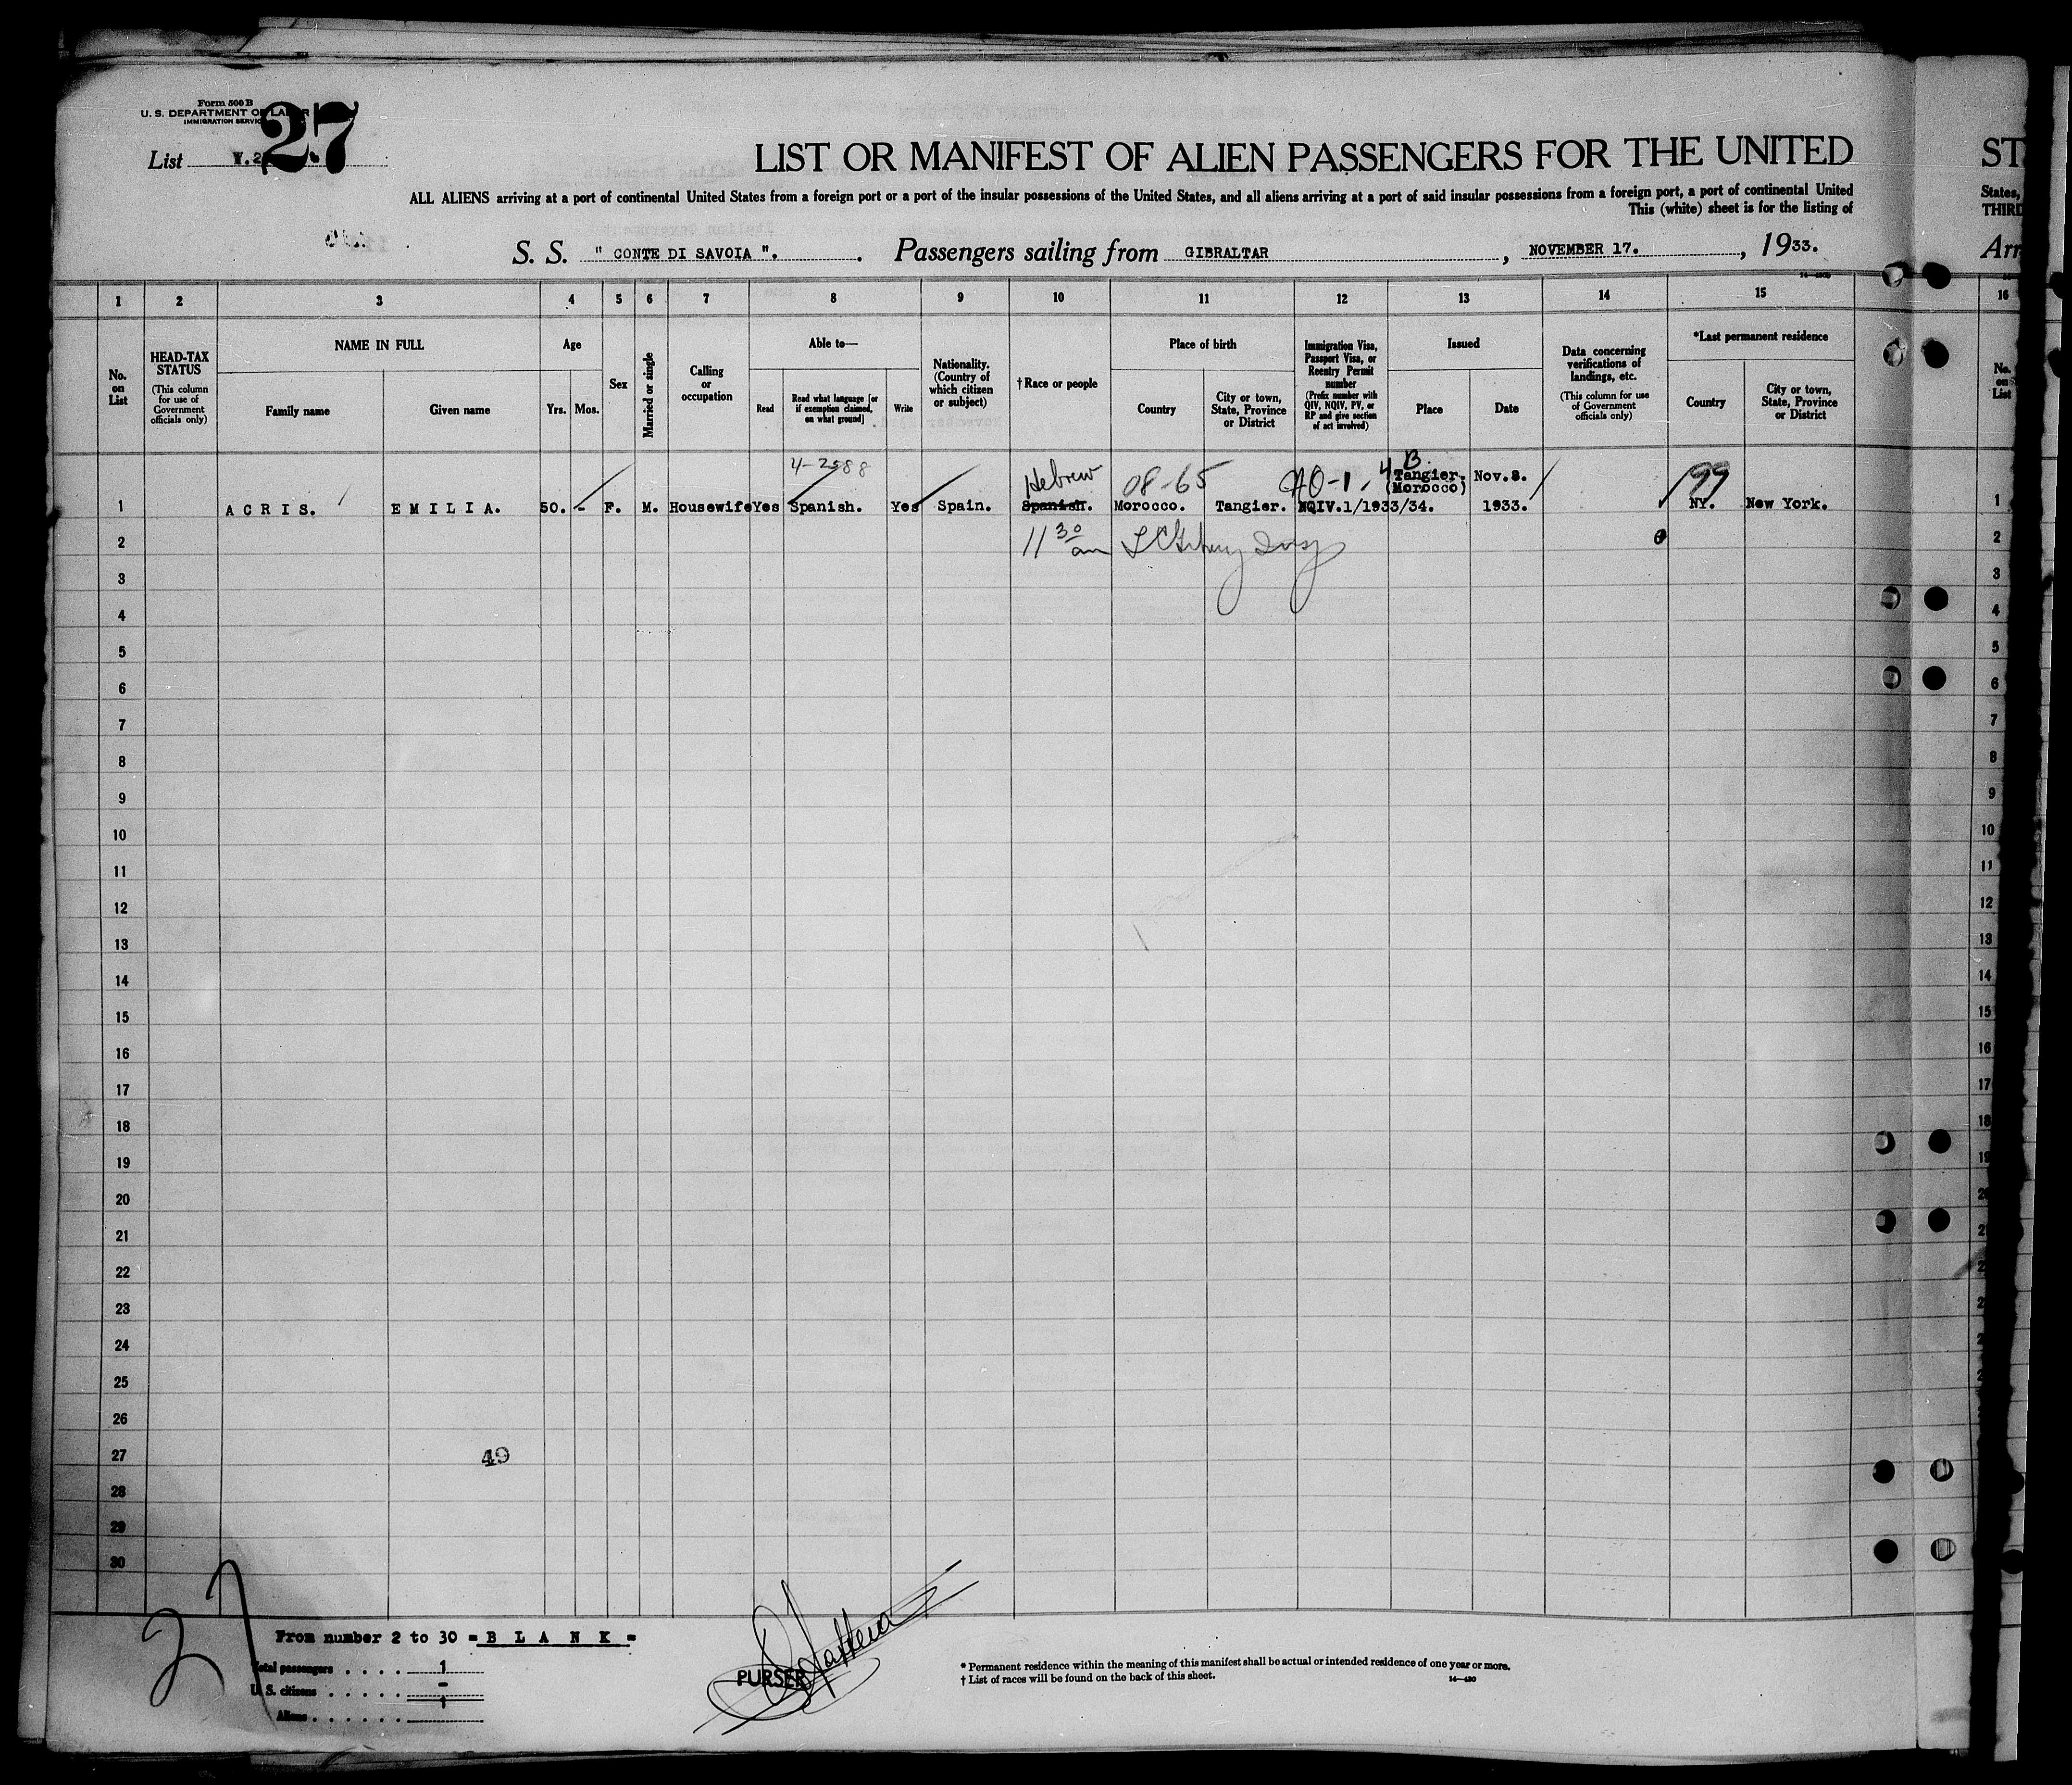 Form 500 B
U. S. DEPARTMENT OF LABOR
IMMIGRATION SERVICE
27
List
LIST OR MANIFEST OF ALIEN PASSENGERS FOR THE UNITED
ST
ALL ALIENS arriving at a port of continental United States from a foreign port or a port of the insular possessions of the United States, and all aliens arriving at a port of said insular possessions from a foreign port, a port of continental United
States,
This (white) sheet is for the listing of
THIRD
S. S. " CONTE DI SAVOIA ". Passengers sailing from GIBRALTAR, NOVEMBER 17., 1933.
Arr
1 2 3 4 5 6 7 8 9 10 11 12 13 14 15 16
No. on List
HEAD-TAX STATUS
(This column for use of Government officials only)
NAME IN FULL
Family name
Given name
Age
Yrs. Mos.
Sex
Married or single
Calling or occupation
Able to—
Read
Read what language [or if exemption claimed, on what ground]
Write
Nationality. (Country of which citizen or subject)
† Race or people
Place of birth
Country
City or town, State, Province or District
Immigration Visa, Passport Visa, or Reentry Permit number
(Prefix number with QIV, NQIV, PV, or RP and give section of act involved)
Issued
Place
Date
Data concerning verifications of landings, etc.
(This column for use of Government officials only)
*Last permanent residence
Country
City or town, State, Province or District
No. on List
4-2588
Hebrew 08-65 4 B. Tangier. Nov.8. 99
(Morocco)
1 ACRIS. EMILIA. 50. - F. M. Housewife Yes Spanish. Yes Spain. Spanish. Morocco. Tangier. NQIV.1/1933/34. 1933. NY. New York. 1
2 11 30 am 2
3 3
4 4
5 5
6 6
7 7
8 8
9 9
10 10
11 11
12 12
13 13
14 14
15 15
16 16
17 17
18 18
19 19
20
21
22
23
24
25
26
27 49
28
29
30
27
From number 2 to 30 = B L A N K =
Total passengers . . . . 1
U. S. citizens . . . . . -
Aliens . . . . . . 1
PURSER
* Permanent residence within the meaning of this manifest shall be actual or intended residence of one year or more.
† List of races will be found on the back of this sheet.
14—430